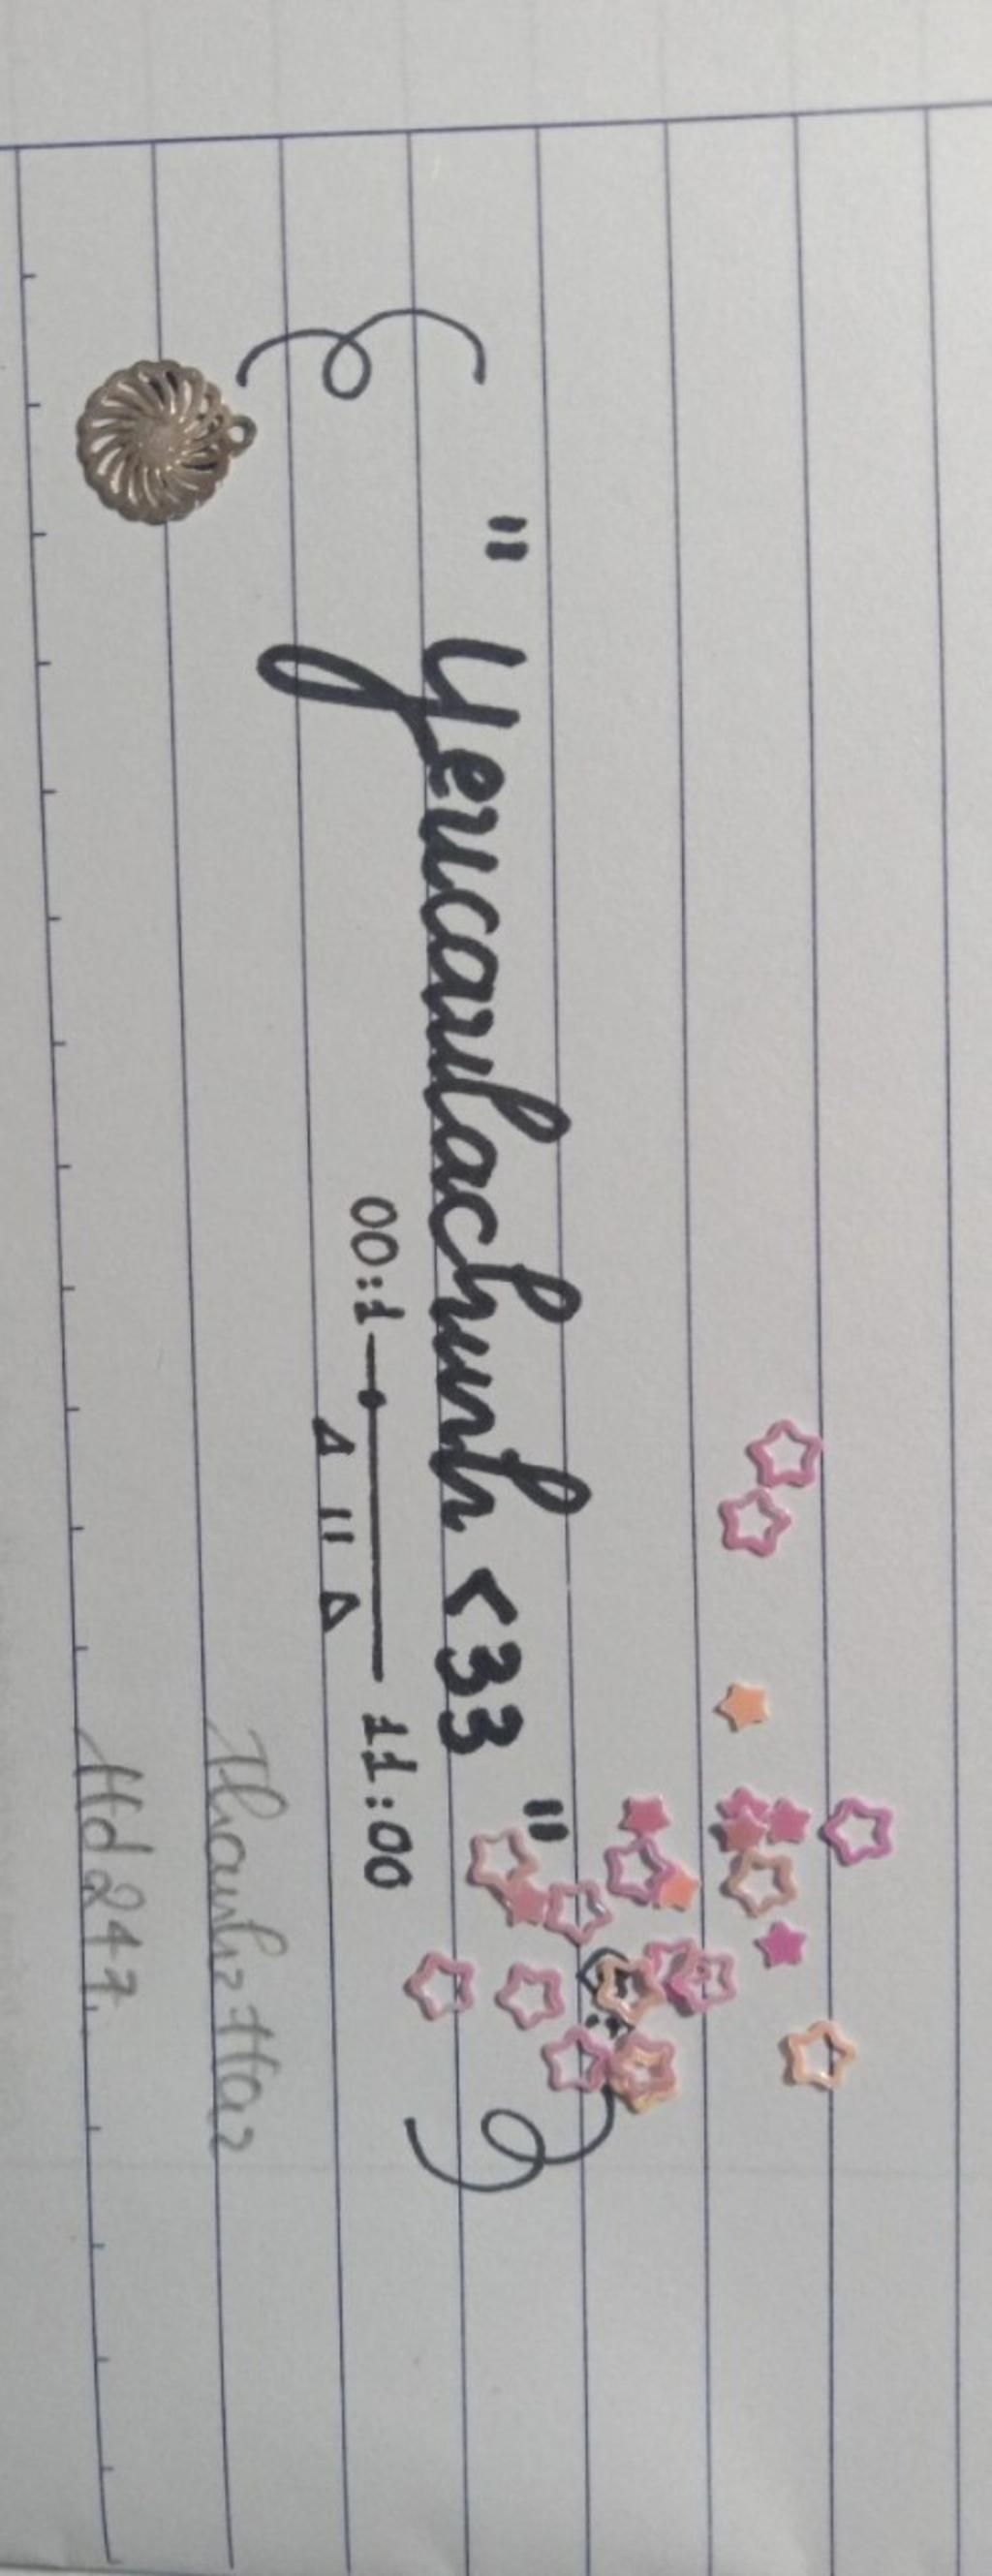 " Yeucaulachinh <33 "
00:1 11:00
Thanh Ha2
Hd247.